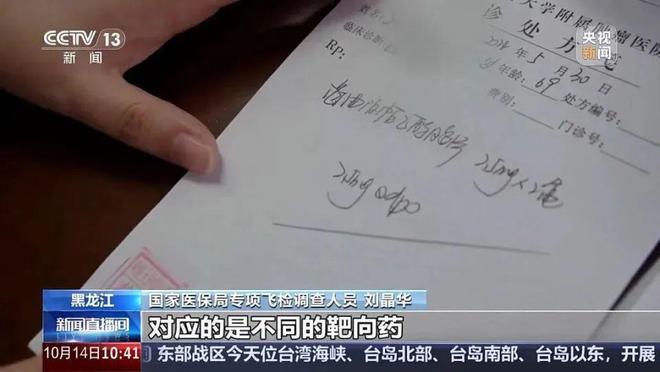 CCTV 13
新闻
央视
新闻
大学附属肿瘤医院
诊处方笺
姓名:
年5月30日
临床诊断:
年龄:69 处方编号:
费别: 门诊号:
RP:
25mg×2盒
25mg qd po
黑龙江
国家医保局专项飞检调查人员 刘晶华
新闻直播间
对应的是不同的靶向药
10月14日10:41
东部战区今天位台湾海峡、台岛北部、台岛南部、台岛以东，开展